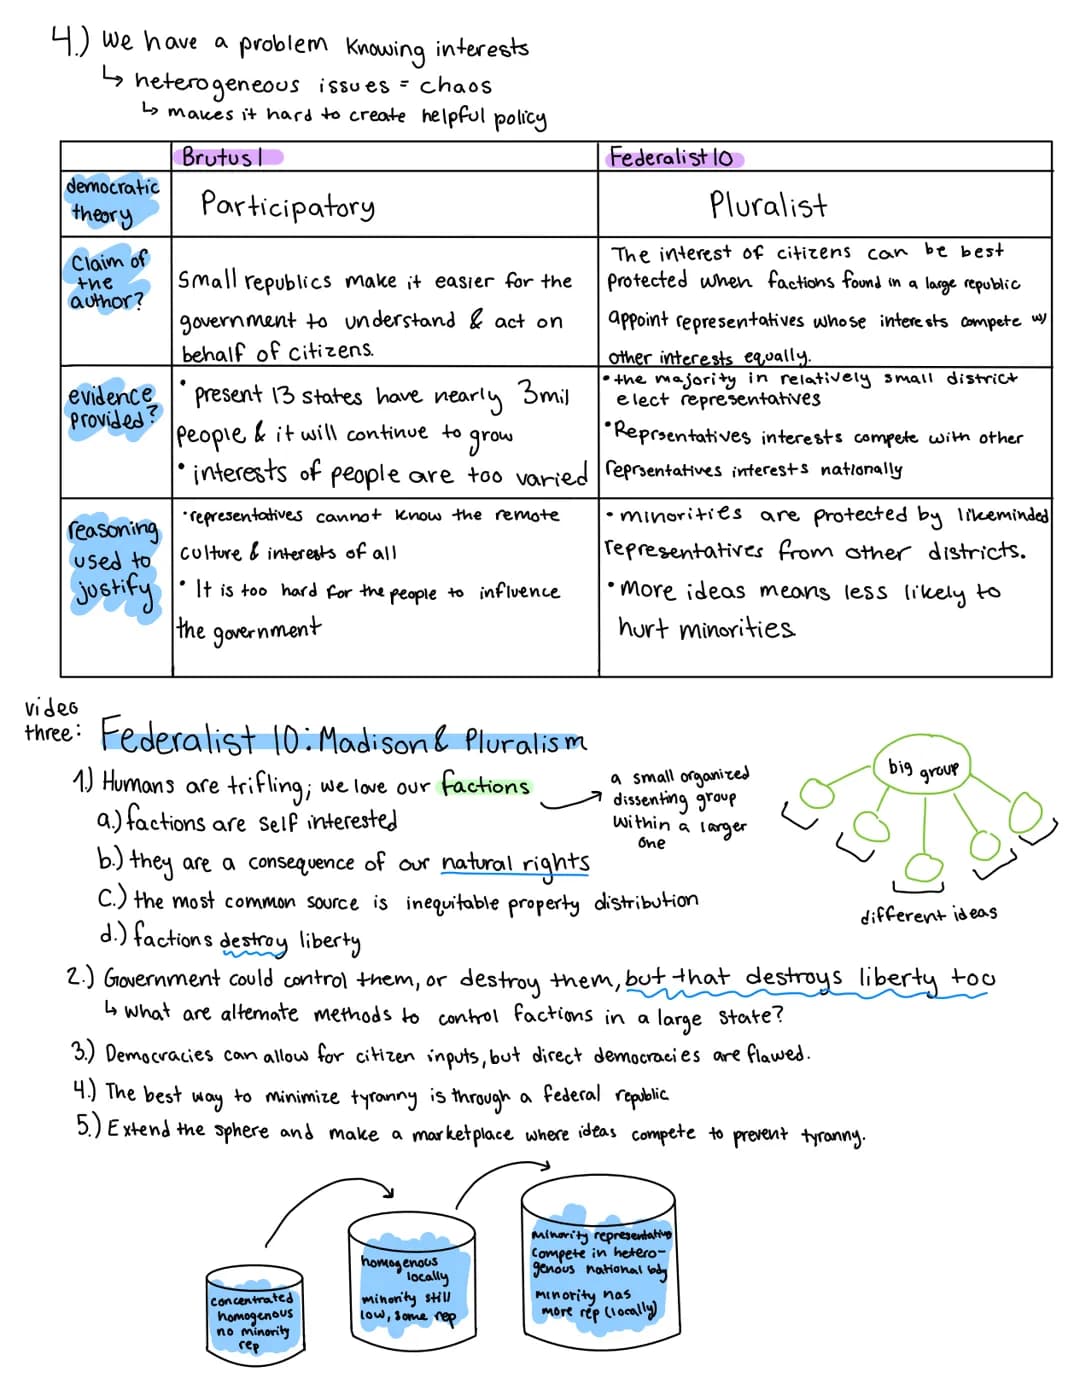 4.) We have a problem knowing interests
↳ heterogeneous issues = chaos
↳ makes it hard to create helpful policy
Brutus 1
Federalist 10
democratic
theory
Participatory
Pluralist
Claim of
the
author?
Small republics make it easier for the
government to understand & act on
behalf of citizens.
The interest of citizens can be best
protected when factions found in a large republic
appoint representatives whose interests compete w/
other interests equally.
evidence
provided?
• present 13 states have nearly 3mil
people & it will continue to grow
• interests of people are too varied
• the majority in relatively small district
elect representatives
• Reprsentatives interests compete with other
reprsentatives interests nationally
reasoning
used to
justify
• representatives cannot know the remote
culture & interests of all
• It is too hard for the people to influence
the government
• minorities are protected by likeminded
representatives from other districts.
• More ideas means less likely to
hurt minorities
video
three:
Federalist 10: Madison & Pluralism
1.) Humans are trifling; we love our factions
a.) factions are self interested
b.) they are a consequence of our natural rights
C.) the most common source is inequitable property distribution
d.) factions destroy liberty
a small organized
dissenting group
within a larger
one
big group
different ideas
2.) Government could control them, or destroy them, but that destroys liberty too
↳ What are alternate methods to control factions in a large state?
3.) Democracies can allow for citizen inputs, but direct democracies are flawed.
4.) The best way to minimize tyranny is through a federal republic
5.) Extend the sphere and make a marketplace where ideas compete to prevent tyranny.
concentrated
homogenous
no minority
rep
homogenous
locally
minority still
low, some rep
minority representative
compete in hetero-
genous national body
minority has
more rep (locally)